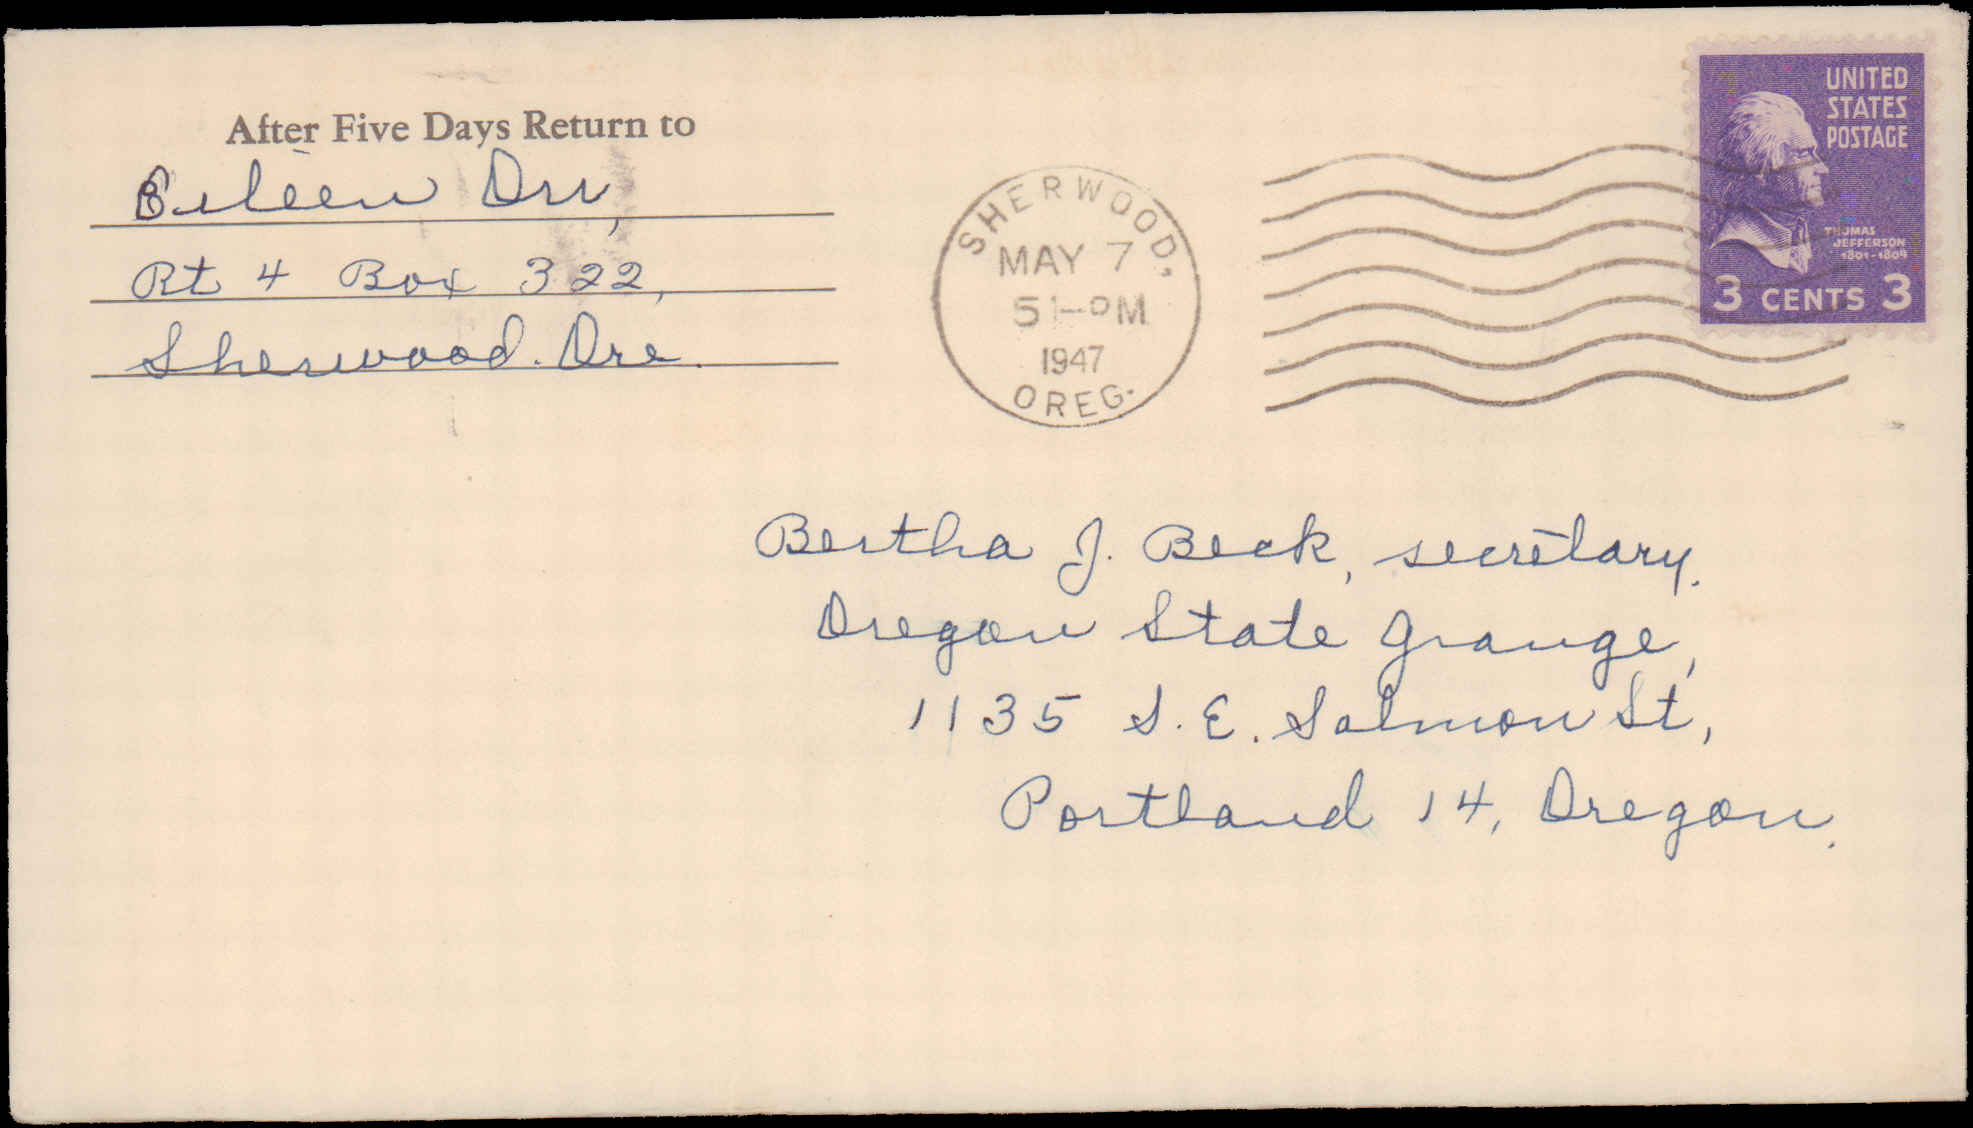 After Five Days Return to
Eileen Orr,
Rt 4 Box 322,
Sherwood. Ore.
SHERWOOD,
MAY 7
5 PM
1947
OREG.
UNITED
STATES
POSTAGE
THOMAS
JEFFERSON
1801-1809
3 CENTS 3
Bertha J. Beck, secretary.
Oregon State Grange,
1135 S. E. Salmon St,
Portland 14, Oregon.